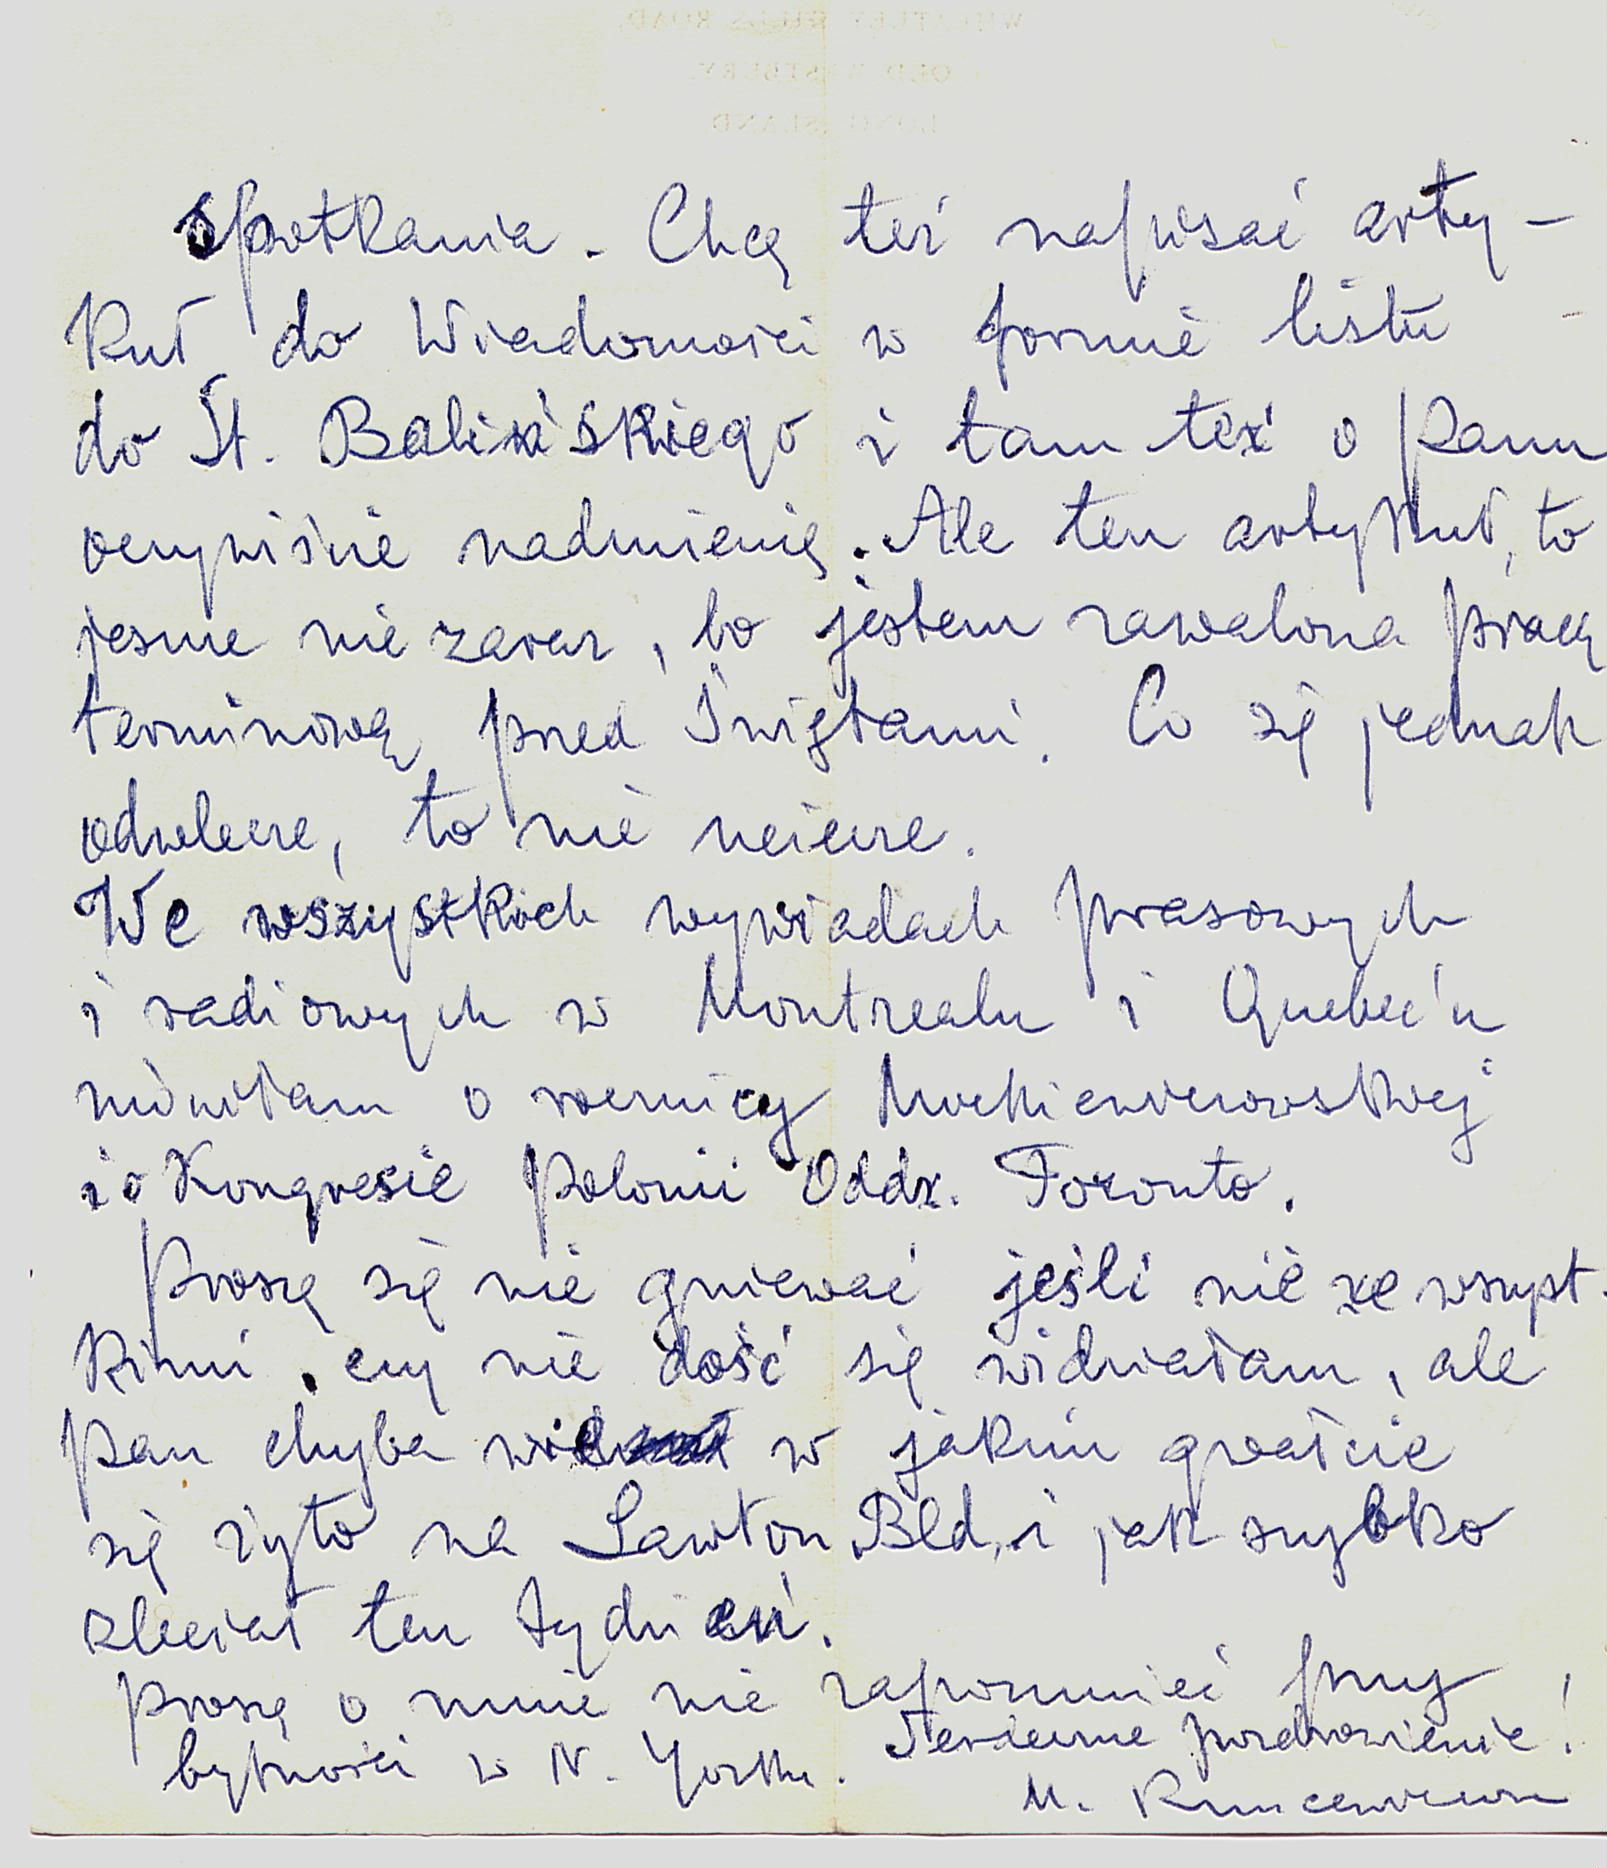 WHEATLEY HILLS ROAD.
OLD WESTBURY.
LONG ISLAND
spotkania. Chcę też napisać arty-
kuł do Wiadomości w formie listu
do St. Balińskiego i tam też o Panu
oczywiście nadmienię. Ale ten artykuł, to
jeszcze nie zaraz, bo jestem zawalona pracą
terminową przed Świętami. Co się jednak
odwlecze, to nie uciecze.
We wszystkich wywiadach prasowych
i radiowych w Montrealu i Quebec'u
mówiłam o rocznicy
i o Kongresie Polonii Oddz. Toronto.
Proszę się nie gniewać jeśli nie ze wszyst-
kimi, czy nie dość się widziałam, ale
Pan chyba wie w jakim gwałcie
się żyło na Lawton Bld, i jak szybko
zleciał ten tydzień.
Proszę o mnie nie zapomnieć przy
bytności w N. Yorku.
Serdeczne pozdrowienie!
M.